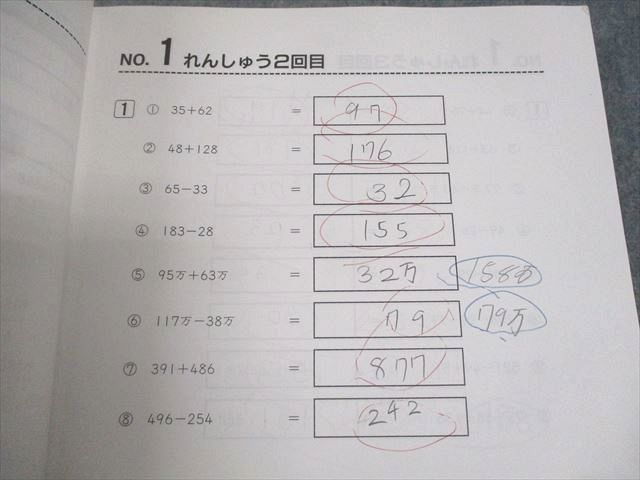 NO. 1 れんしゅう2回目
1 ① 35+62 = 97
② 48+128 = 176
③ 65-33 = 32
④ 183-28 = 155
⑤ 95万+63万 = 32万 158万
⑥ 117万-38万 = 79 79万
⑦ 391+486 = 877
⑧ 496-254 = 242